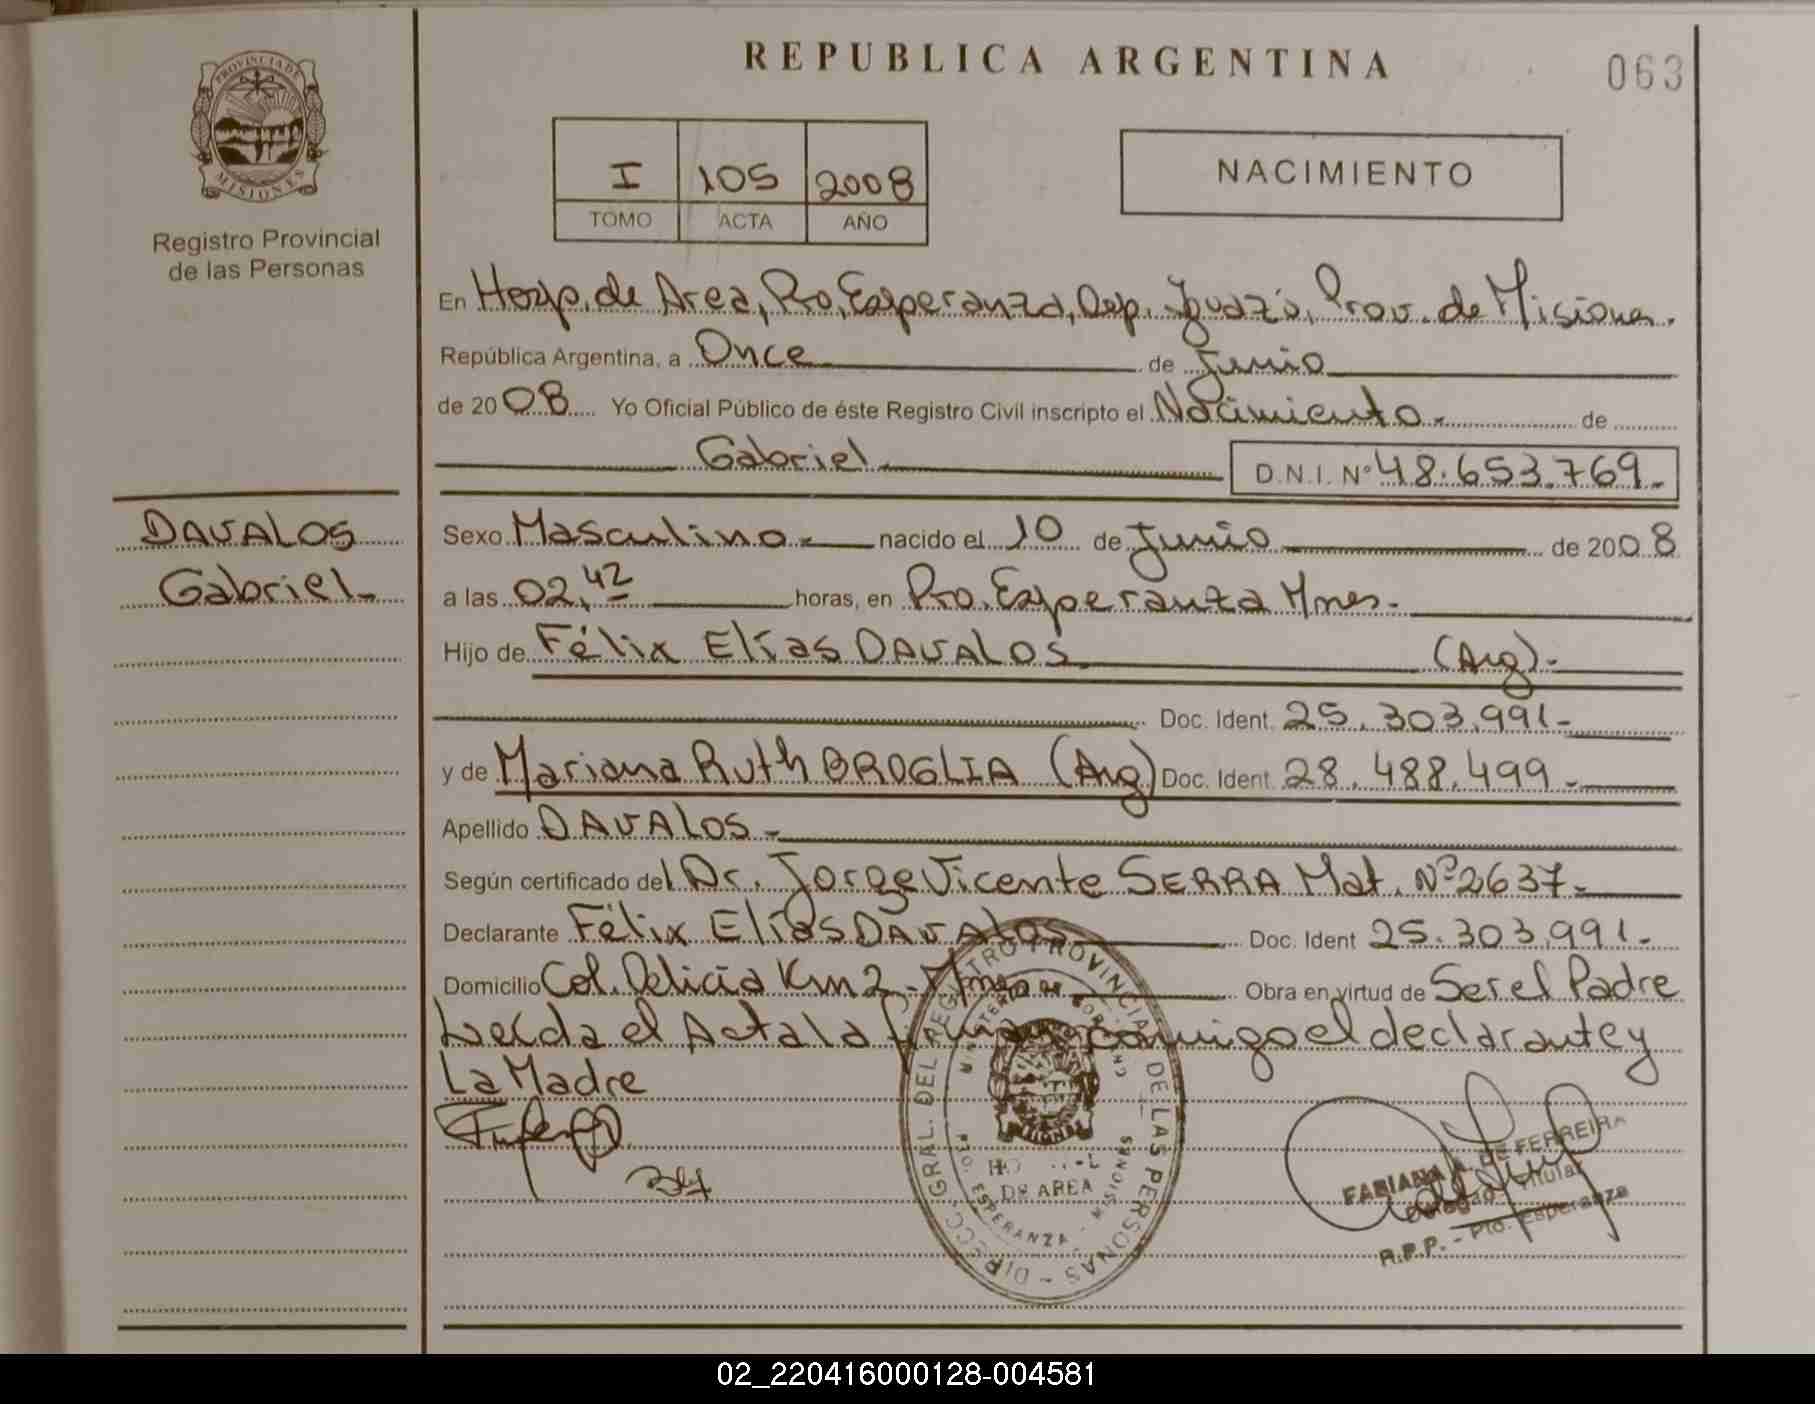 REPUBLICA ARGENTINA
063
PROVINCIA DE
MISIONES
Registro Provincial
de las Personas
I 105 2008
TOMO ACTA AÑO
NACIMIENTO
En Hosp. de Area, Pto. Esperanza, Dep. Iguazú, Prov. de Misiones.
República Argentina, a Once de Junio
de 2008 Yo Oficial Público de éste Registro Civil inscripto el Nacimiento.- de
Gabriel.
D.N.I. Nº 48.653.769.-
DAVALOS
Gabriel.-
Sexo Masculino.- nacido el 10 de Junio de 2008
a las 02,42 horas, en Pto. Esperanza Mnes.-
Hijo de Félix Elías DAVALOS (Arg).-
Doc. Ident. 25.303.991.-
y de Mariana Ruth BROGLIA (Arg) Doc. Ident. 28.488.499.-
Apellido DAVALOS.-
Según certificado del Dr. Jorge Vicente SERRA Mat. Nº 2637.-
Declarante Félix Elías DAVALOS Doc. Ident 25.303.991.-
Domicilio Col. Delicia Km 2 - Mnes Obra en virtud de Ser el Padre
Leída el Acta la firman conmigo el declarante y
La Madre
DIRECC. GRAL. DEL REGISTRO PROVINCIAL DE LAS PERSONAS -
DE AREA
PTO. ESPERANZA - MISIONES
FABIANA A. DE FERREIRA
Delegada Titular
R.P.P. - Pto. Esperanza
02_220416000128-004581